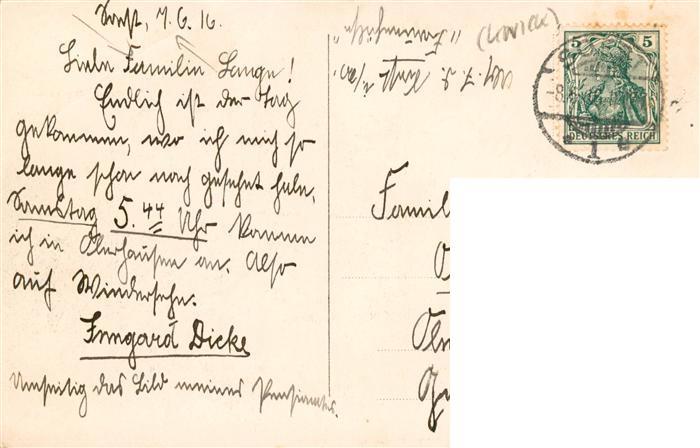 Soest, 7.6.16.
Liebe Familie Lange!
Endlich ist der Tag
gekommen, wo ich mich so
lange schon nach gesehnt habe.
Samstag 5.44 Uhr komme
ich in Oberhausen an. Also
auf Wiedersehn.
Irmgard Dicke
Umseitig das Bild meines Pensionates.
5 5
DEUTSCHES REICH
1
Famil